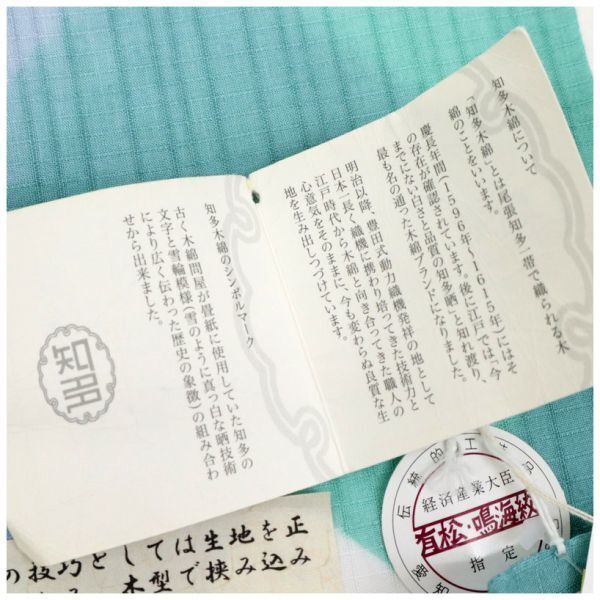 知多木綿について
「知多木綿」とは尾張知多一帯で織られる木
綿のことをいいます。
慶長年間(1596年〜1615年)にはそ
の存在が確認されています。後に江戸では、今
までにない白さと品質の「知多晒」と知れ渡り、
最も名の通った木綿ブランドになりました。
明治以降、豊田式動力織機発祥の地として
日本一長く織機に携わり培ってきた技術力と
江戸時代から木綿と向き合ってきた職人の
心意気をそのままに、今も変わらぬ良質な生
地を生み出しつづけています。
知多木綿のシンボルマーク
古く木綿問屋が畳紙に使用していた知多の
文字と雪輪模様(雪のように真っ白な晒技術
により広く伝わった歴史の象徴)の組み合わ
せから出来ました。
知多
の技巧としては生地を正
木型で挟み込み
伝統的工
経済産業大臣
有松・鳴海絞
指定